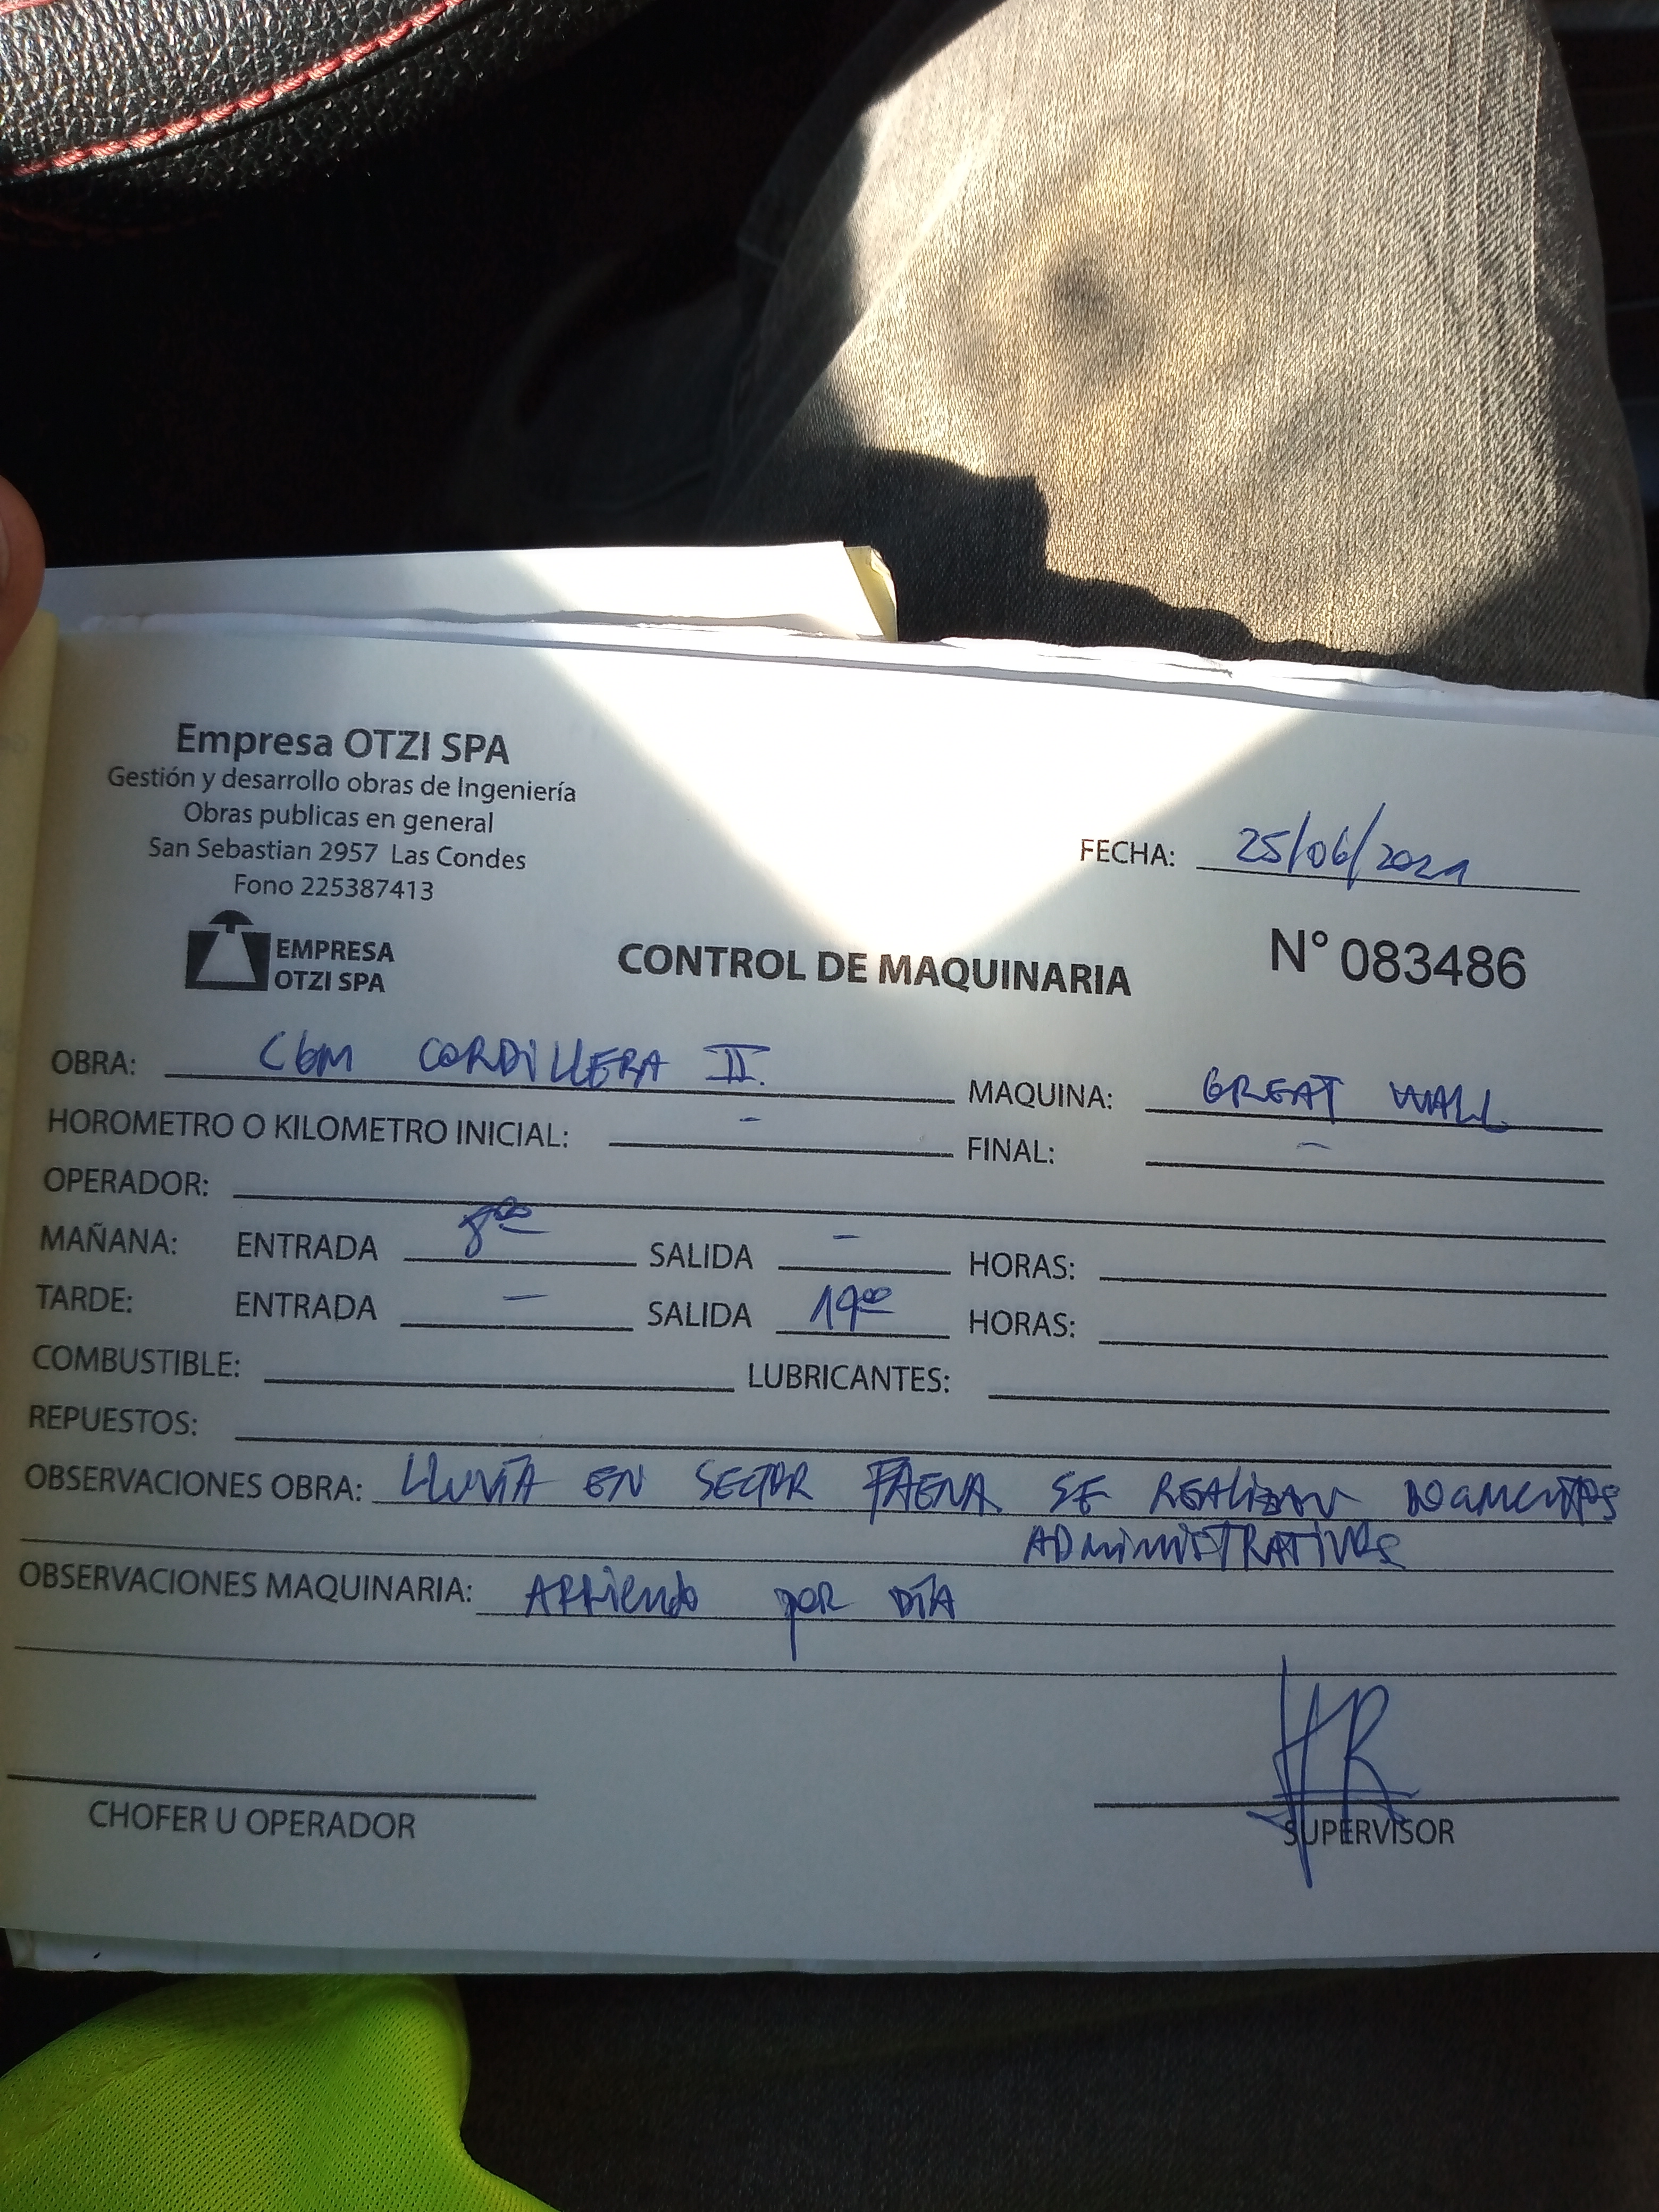 Empresa OTZI SPA
Gestión y desarrollo obras de Ingeniería
Obras publicas en general
San Sebastian 2957 Las Condes
Fono 225387413
FECHA: 25/06/2021
EMPRESA
OTZI SPA
CONTROL DE MAQUINARIA
N° 083486
OBRA: CGM CORDILLERA II. MAQUINA: GREAT WALL
HOROMETRO O KILOMETRO INICIAL: - FINAL: -
OPERADOR:
MAÑANA: ENTRADA 8:00 SALIDA - HORAS:
TARDE: ENTRADA - SALIDA 19:00 HORAS:
COMBUSTIBLE: LUBRICANTES:
REPUESTOS:
OBSERVACIONES OBRA: LLUVIA EN SECTOR FAENA SE REALIZAN DOCUMENTOS
ADMINISTRATIVOS
OBSERVACIONES MAQUINARIA: ARRIENDO POR DÍA
HR
CHOFER U OPERADOR SUPERVISOR